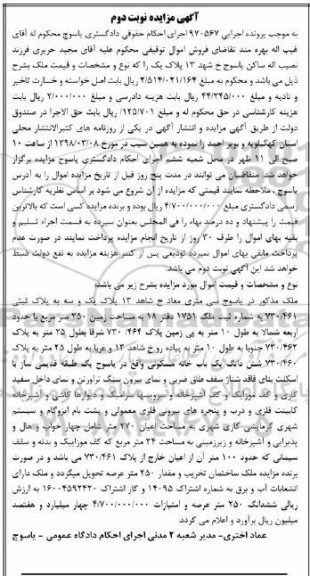 آگهی مزایده نوبت دوم
به موجب پرونده اجرایی ۹۷۰۵۶۷ اجرای احکام حقوقی دادگستری یاسوج محکوم له آقای
غیب اله بهره مند تقاضای فروش اموال توقیفی محکوم علیه آقای مجید حریری فرزند
نصیب اله ساکن یاسوج خ شهد ۱۳ پلاک یک را که نوع و مشخصات و قیمت ملک بشرح
ذیل می باشد و محکوم به مبلغ ۲/۵۱۴/۰۲۱/۱۶۴ ریال بابت اصل خواسته و خسارت تاخیر
و تادیه و مبلغ ۴۴/۲۴۵/۰۰۰ ریال بابت هزینه دادرسی و مبلغ ۲/۰۰۰/۰۰۰ ریال بابت
هزینه کارشناسی در حق محکوم له و مبلغ ۱۲۵/۷۰۱ ریال بابت حق الاجرا در صندوق
دولت از طریق آگهی مزایده و انتشار آگهی در یکی از روزنامه های کثیرالانتشار محلی
استان کهگیلویه و بویر احمد را نموده به همین سبب در مورخ ۱۳۹۸/۰۳/۰۸ از ساعت ۱۰
صبح الی ۱۱ ظهر در محل شعبه ششم اجرای احکام دادگستری یاسوج مزایده برگزار
خواهد شد. متقاضیان می توانند در مدت پنج روز قبل از تاریخ مزایده اموال را به آدرس
یاسوج . ملاحظه نمایند قیمتی که مزایده از آن شروع می شود بر اساس نظریه کارشناس
رسمی دادگستری مبلغ ۴/۷۰۰/۰۰۰/۰۰۰ ریال بوده و برنده مزایده کسی است که بالاترین
قیمت را پیشنهاد و ده درصد بهاء را فی المجلس بعنوان سپرده به قسمت اجراء تسلیم و
بقیه بهای اموال را ظرف ۳۰ روز از تاریخ انجام مزایده پرداخت نمایند در صورت عدم
پرداخت مابقی بهای اموال سپرده تودیعی پس از کسر هزینه مزایده به نفع دولت ضبط
خواهد شد این آگهی نوبت دوم می باشد.
نوع و مشخصات و قیمت اموال مورد مزایده بشرح زیر می باشد:
ملک مذکور در یاسوج سی متری معاد خ شاهد ۱۳ پلاک یک و سه به پلاک ثبتی
۷۳۰/۴۶۱ به شماره ثبت ملک ۱۷۵۱ دفتر ۱۸ به مساحت زمین ۲۵۰ متر مربع با حدود
اربعه شمالا به طول ۱۰ متر به پی زمین پلاک ۷۳۰/۴۶۴ شرقا بطول ۲۵ متر به پلاک
۷۳۰/۴۶۲ جنوبا به طول ۱۰ متر به پیاده رو خ شاهد ۱۳ و غربا به طول ۲۵ متر به پلاک
۷۳۰/۴۶۰ شش دانگ یک باب خانه مسکونی واقع در یاسوج یک طبقه قدیمی ساز با
اسکلت بنای فاقد شناژ سقف طاق ضربی و نمای بیرون سنگ تراورتن و نمای داخل سفید
کاری و کف موزاییک و کف آشپزخانه و سرویسها سرامیک و دیوارها کاشی و آشپزخانه
کابینت فلزی و درب و پنجره های بیرونی فلزی معمولی و پشت بام ایزوگام و سیستم
شهری گرمایشی گازی شهری به مساحت اعیان ۲۷۰ متر شامل چهار خواب و هال و
پذیرایی و آشپزخانه و زیرزمینی به مساحت ۲۴ متر مربع که کف موزاییک و بدنه و سقف
سیمانی که حدود ۱۰۰ متر آن از اعیان خارج از پلاک ۷۳۰/۴۶۱ می باشد و در صورت
برنده مزایده ملک ساختمان تخریب و مقدار ۲۵۰ متر عرصه تحویل میگردد و ملک دارای
انشعابات آب و برق به شماره اشتراک ۱۴۰۹۵ و گاز اشتراک ۱۶۰۰۴۵۹۲۴۲۰ به ارزش
ریالی ششدانگ ۲۵۰ متر عرصه و امتیازات ۴/۷۰۰/۰۰۰/۰۰۰ چهار میلیارد و هفتصد
میلیون ریال برآورد و اعلام می گردد.
عماد اختری- مدیر شعبه ۲ مدنی اجرای احکام دادگاه عمومی - یاسوج